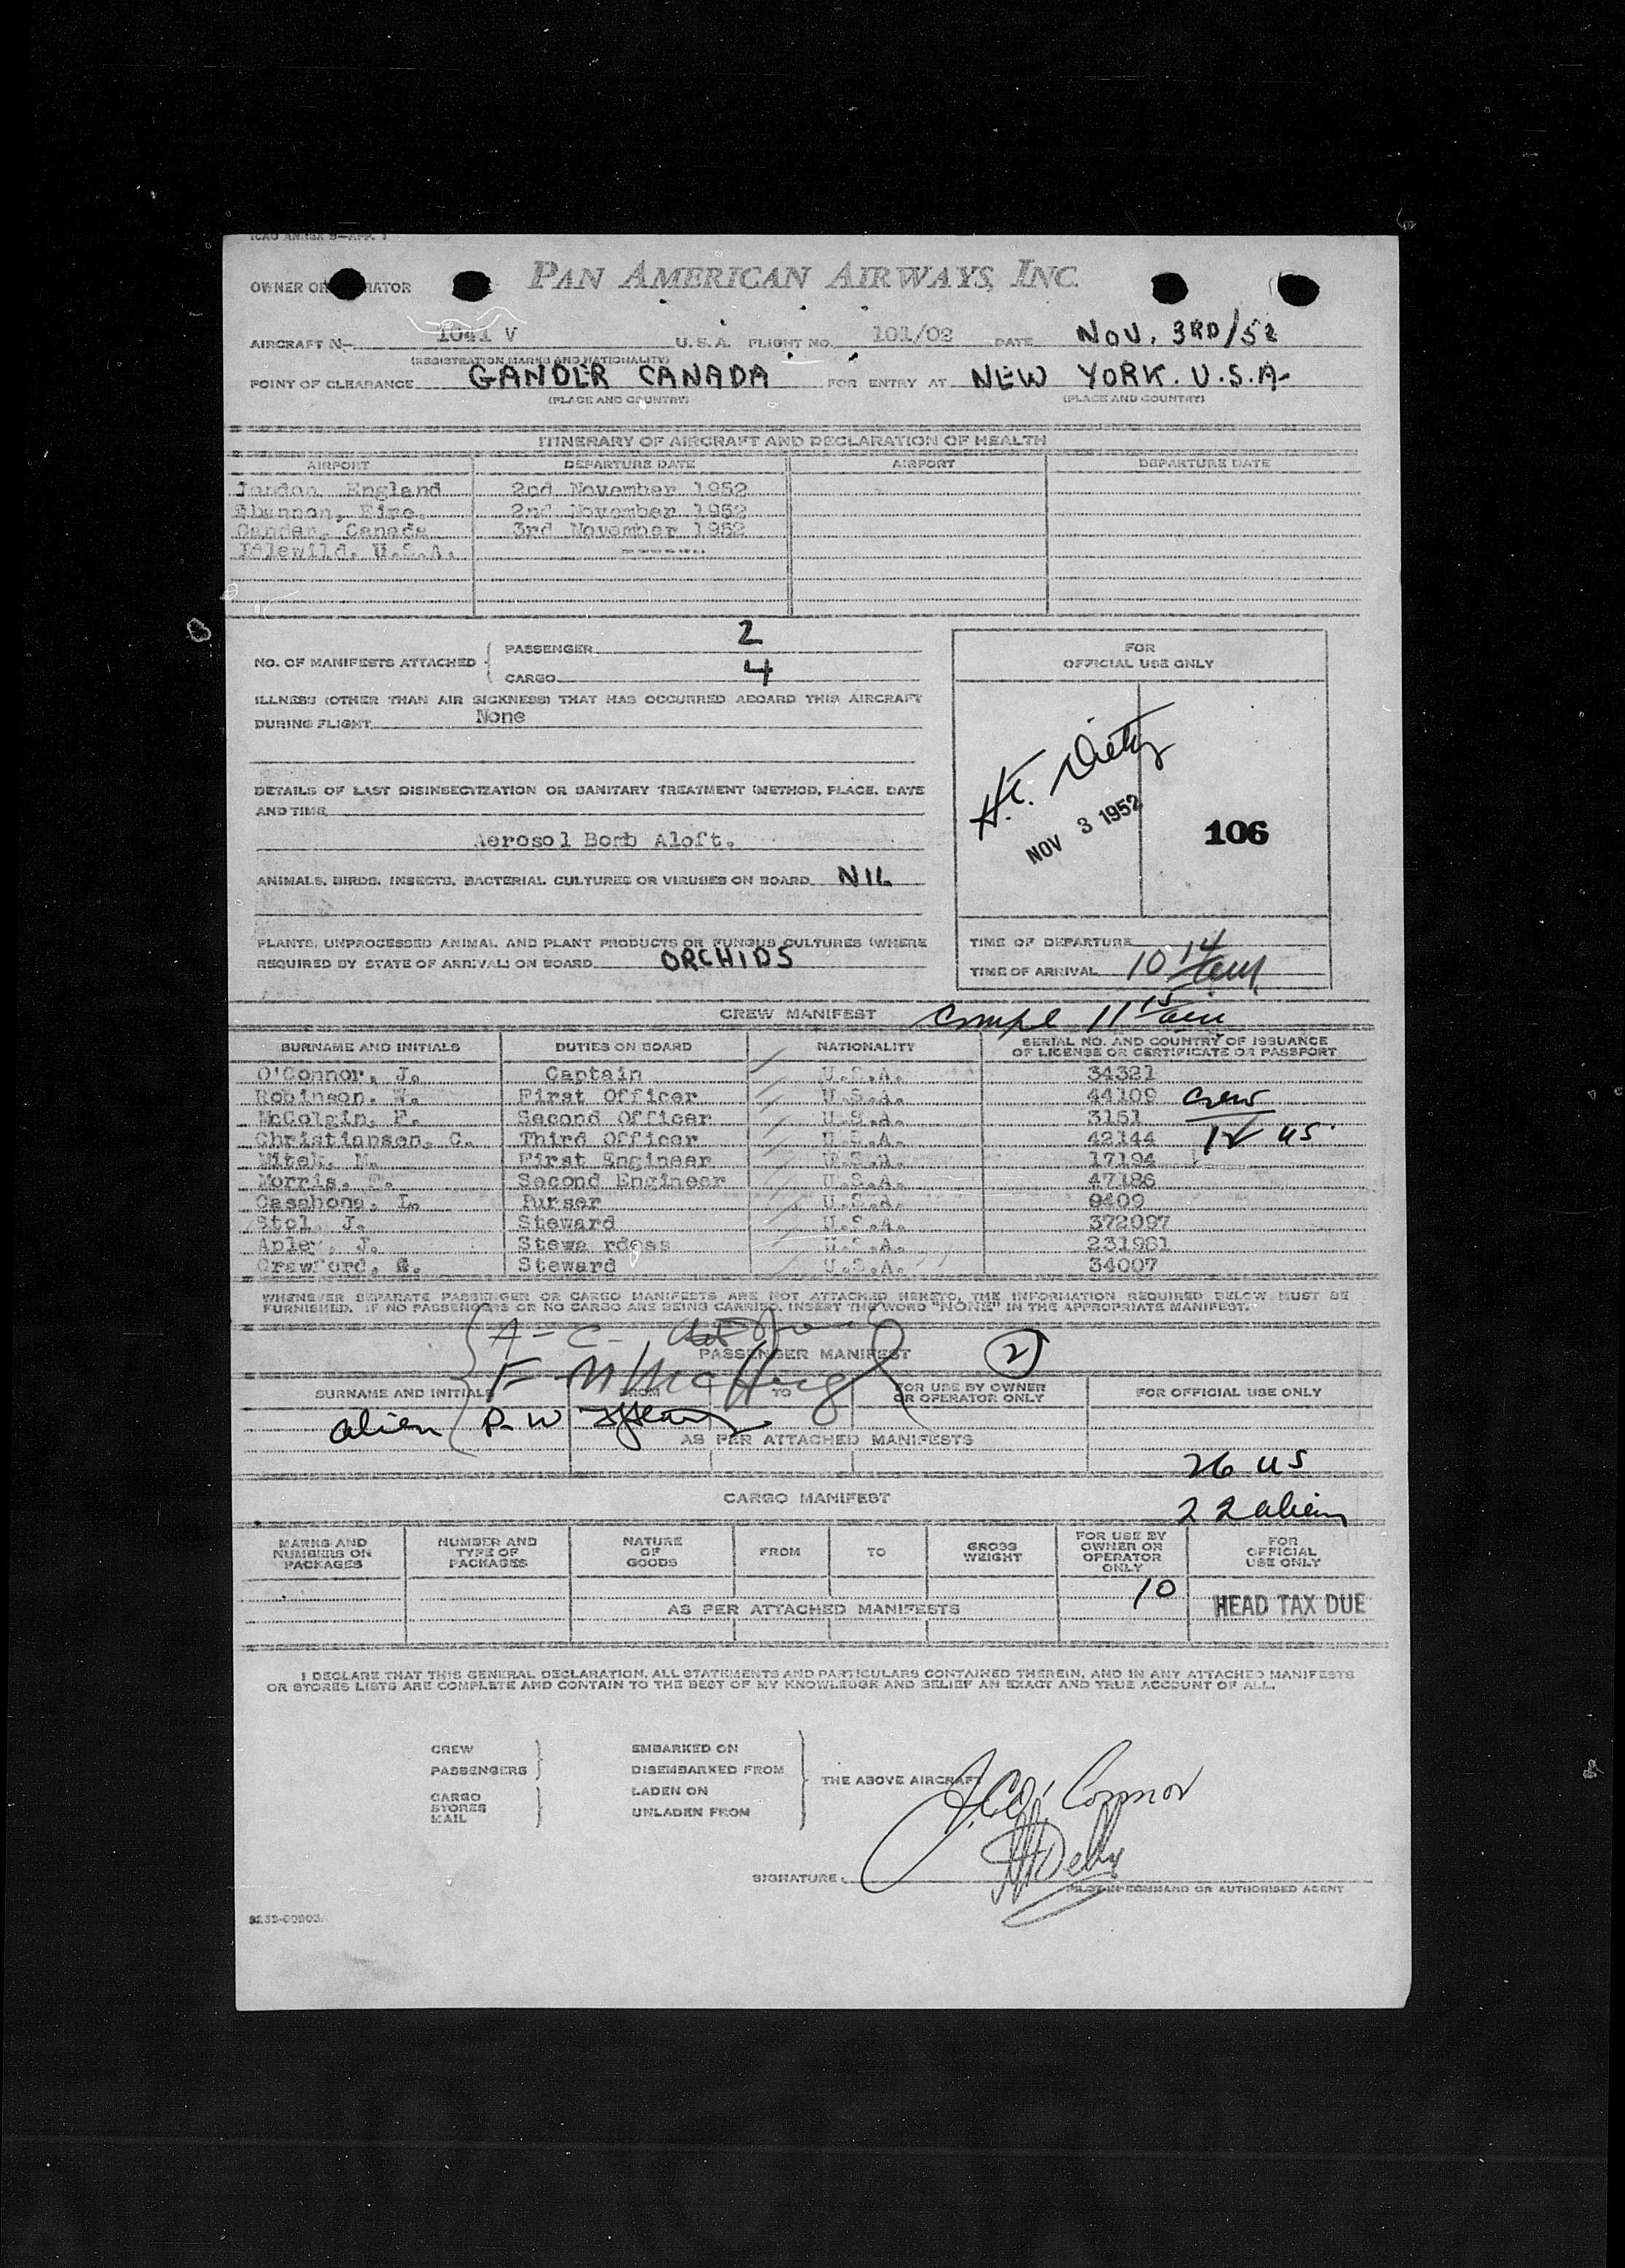 ICAO ANNEX 9—APP. 1
OWNER OR OPERATOR PAN AMERICAN AIRWAYS, INC.
AIRCRAFT N- 1041 V U.S.A. FLIGHT NO. 101/02 DATE NOV. 3RD/52
(REGISTRATION MARKS AND NATIONALITY)
POINT OF CLEARANCE GANDER CANADA FOR ENTRY AT NEW YORK. U.S.A-
(PLACE AND COUNTRY) (PLACE AND COUNTRY)
ITINERARY OF AIRCRAFT AND DECLARATION OF HEALTH
AIRPORT DEPARTURE DATE AIRPORT DEPARTURE DATE
London, England 2nd November 1952
Shannon, Eire. 2nd November 1952
Gander, Canada 3rd November 1952
Idlewild, U.S.A. -------
NO. OF MANIFESTS ATTACHED
PASSENGER 2
CARGO 4
ILLNESS (OTHER THAN AIR SICKNESS) THAT HAS OCCURRED ABOARD THIS AIRCRAFT
DURING FLIGHT None
DETAILS OF LAST DISINSECTIZATION OR SANITARY TREATMENT (METHOD, PLACE, DATE
AND TIME)
Aerosol Bomb Aloft.
ANIMALS, BIRDS, INSECTS, BACTERIAL CULTURES OR VIRUSES ON BOARD NIL
PLANTS, UNPROCESSED ANIMAL AND PLANT PRODUCTS OR FUNGUS CULTURES (WHERE
REQUIRED BY STATE OF ARRIVAL) ON BOARD ORCHIDS
FOR
OFFICIAL USE ONLY
NOV 3 1952
106
TIME OF DEPARTURE
TIME OF ARRIVAL 10 14 am
CREW MANIFEST Compl 11 15 am
SURNAME AND INITIALS DUTIES ON BOARD NATIONALITY SERIAL NO. AND COUNTRY OF ISSUANCE
OF LICENSE OR CERTIFICATE OR PASSPORT
O'Connor, J. Captain U.S.A. 34321
Robinson, W. First Officer U.S.A. 44109 Crew
McColgin, F. Second Officer U.S.A. 3151
Christiansen, C. Third Officer U.S.A. 42144 US
Mitek, M. First Engineer U.S.A. 17194
Morris, Second Engineer U.S.A. 47186
Casabona, L. Purser U.S.A. 9409
Stol, J. Steward U.S.A. 372097
Apley, J. Stewa rdess U.S.A. 231981
Crawford, Steward U.S.A. 34007
WHENEVER SEPARATE PASSENGER OR CARGO MANIFESTS ARE NOT ATTACHED HERETO, THE INFORMATION REQUIRED BELOW MUST BE
FURNISHED. IF NO PASSENGERS OR NO CARGO ARE BEING CARRIED, INSERT THE WORD "NONE" IN THE APPROPRIATE MANIFEST.
A - C -
PASSENGER MANIFEST 2
SURNAME AND INITIALS FROM TO FOR USE BY OWNER
OR OPERATOR ONLY FOR OFFICIAL USE ONLY
alien P - W
AS PER ATTACHED MANIFESTS
26 US
CARGO MANIFEST
22 alien
MARKS AND
NUMBERS ON
PACKAGES
NUMBER AND
TYPE OF
PACKAGES
NATURE
OF
GOODS
FROM
TO
GROSS
WEIGHT
FOR USE BY
OWNER OR
OPERATOR
ONLY
FOR
OFFICIAL
USE ONLY
10
AS PER ATTACHED MANIFESTS HEAD TAX DUE
I DECLARE THAT THIS GENERAL DECLARATION, ALL STATEMENTS AND PARTICULARS CONTAINED THEREIN, AND IN ANY ATTACHED MANIFESTS
OR STORES LISTS ARE COMPLETE AND CONTAIN TO THE BEST OF MY KNOWLEDGE AND BELIEF AN EXACT AND TRUE ACCOUNT OF ALL.
CREW EMBARKED ON
PASSENGERS DISEMBARKED FROM
THE ABOVE AIRCRAFT J.C. O'Connor
CARGO LADEN ON
STORES
MAIL UNLADEN FROM
SIGNATURE
PILOT-IN-COMMAND OR AUTHORISED AGENT